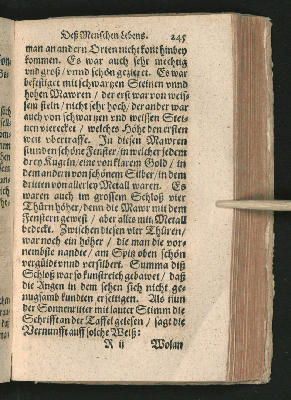 Deß Menschen Lebens. 245
man an andern Orten nicht kont hinbey
kommen. Es war auch sehr mechtig
vnd groß / vnnd schön gezieret. Es war
befestiget mit schwartzen Steinen vnnd
hohen Mawren / der erst war von weis-
sen steln / nicht sehr hoch / der ander war
auch von schwartzen vnd weissen Stei-
nen viereckct / welches Höhe den ersten
weit vbertraffe. In diesen Mawren
stunden schöne Fenster / in welcher jedem
drey Kugeln / eine von klarem Gold / in
dem andern von schönem Silber / in dem
dritten von allerley Metall waren. Es
waren auch im grossem Schloß vier
Thürn höher / denn die Mawr mit dem
Fenstern geweß / aber alles mit Metall
bedeckt. Zwischen diesen vier Thüren /
war noch ein höher / die man die vor-
nembste nandte / am Spitz oben schön
vergüldt vnnd versilbert. Summa diß
Schloß war so kunstreich gebawet / daß
die Augen in dem sehen sich nicht ge-
nugsamb kundten ersettigen. Als nun
der Sonnenritter mit lauter Stimm die
Schrifft an der Taffel gelesen / sagt die
Vernunfft auff solche Weiß:
R ij Wolan